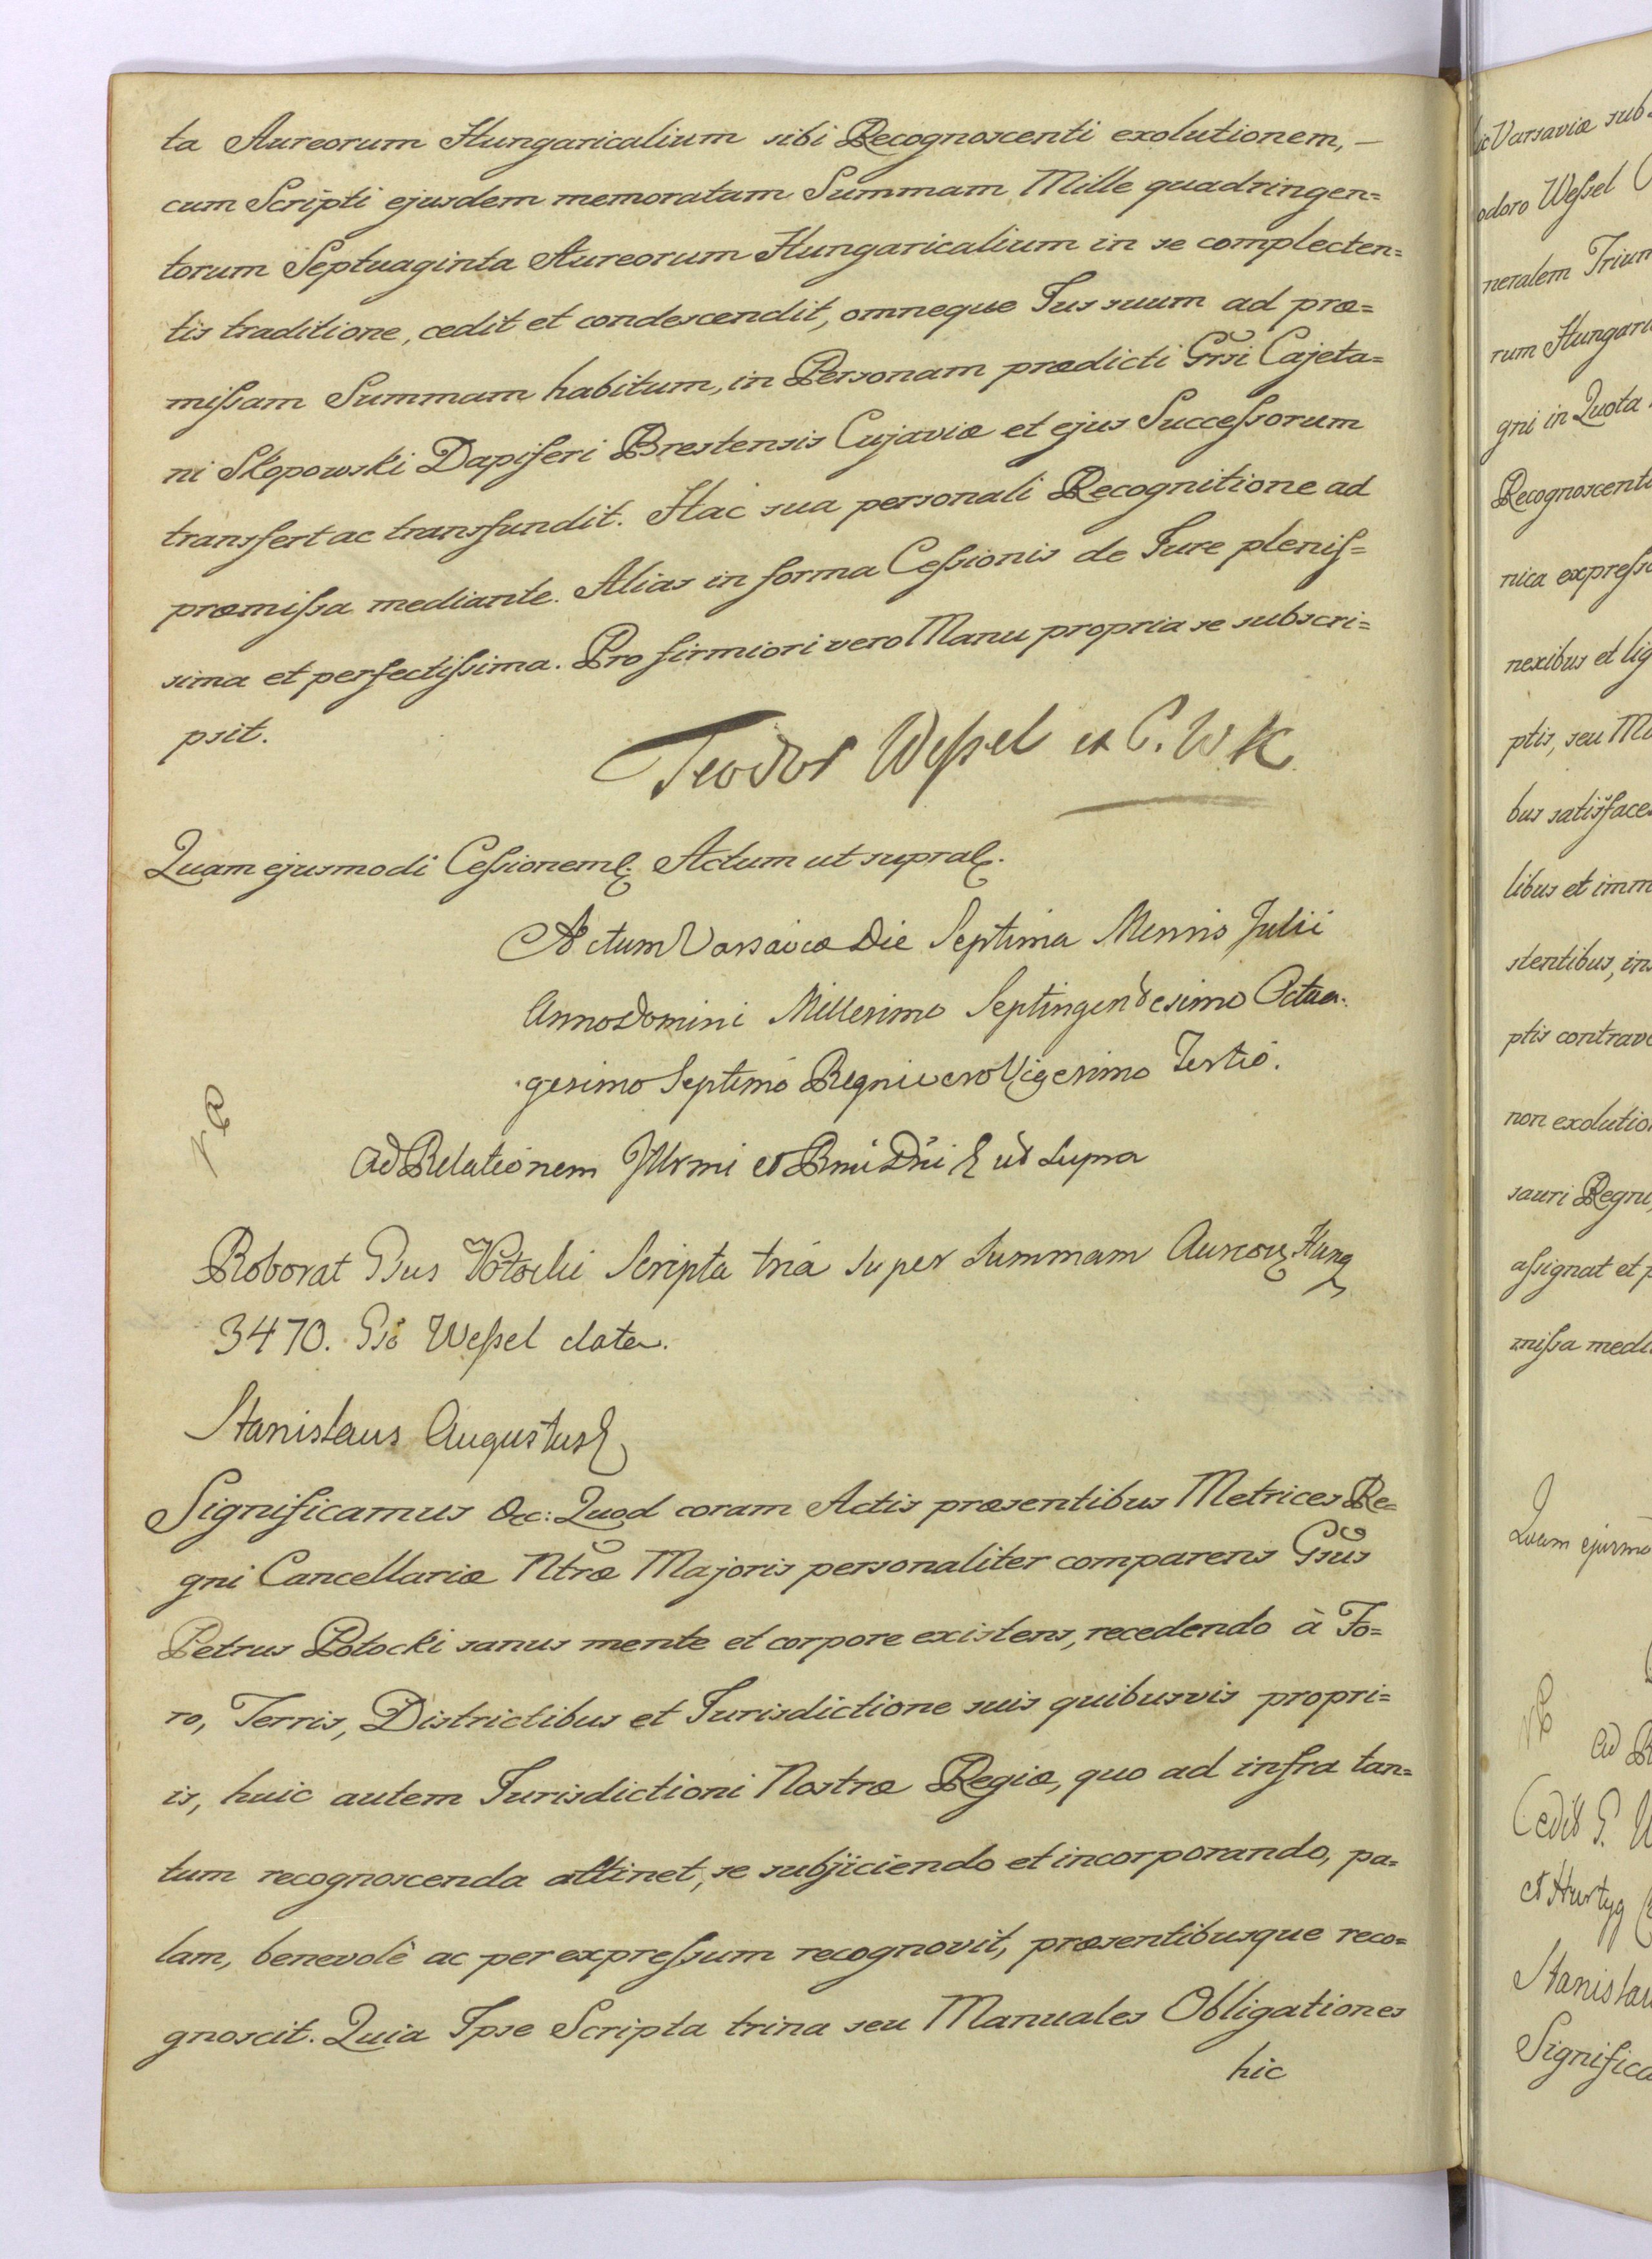 ta Aureorum Hungaricalium sibi Recognoscenti exolutionem, —
cum Scripti ejusdem memoratam Summam Mille quadringen=
torum Septuaginta Aureorum Hungaricalium in se complecten=
tis traditione, cedit et condescendit, omneque Jus suum ad præ=
missam Summam habitum, in Personam prædicti Grsi Cajeta=
ni Skopowski Dapiferi Brestensis Cujaviæ et ejus Successorum
transfert ac transfundit. Hac sua personali Recognitione ad
præmissa mediante. Alias in forma Cessionis de Jure plenis=
sima et perfectissima. Pro firmiori vero Manu propria se subscri=
psit.
Teodor Wessel P. W K
Quam ejusmodi Cessionem Actum ut supra
Actum Varsaviæ Die Septima Mensis Julii
Anno Domini Millesimo Septingentesimo Octua=
gesimo Septimo Regni vero Vigesimo Tertio.
Ad Relationem Illrmi et Rmi Dni ut supra
Roborat Gsus Potocki Scripta tria super summam Aureor Hung
3470. Gso Wessel data.
Stanislaus Augustus
Significamus &c: Quod coram Actis præsentibus Metrices Re=
gni Cancellariæ Ntræ Majoris personaliter comparens Gsus
Petrus Potocki sanus mente et corpore existens, recedendo à Fo=
ro, Terris, Districtibus et Jurisdictione suis quibusvis propri=
is, huic autem Jurisdictioni Nostræ Regiæ, quo ad infra tan=
tum recognoscenda attinet, se subjiciendo et incorporando, pa=
lam, benevolè ac per expressum recognovit, præsentibusque reco=
gnoscit. Quia Ipse Scripta trina seu Manuales Obligationes
hic
Varsaviæ sub=
odoro Wessel
neralem Trium
rum Hungari
gni in Quota
Recognoscenti
nica expresso
nexibus et lig
ptis, seu Ma
bus satisface
libus et imm
stentibus, in
ptis contrave
non exolutio
sauri Regni
assignat et p
missa medi
Quam ejusmo
Ad R
Cedit G. W
et Hurtyg
Stanislau
Significa